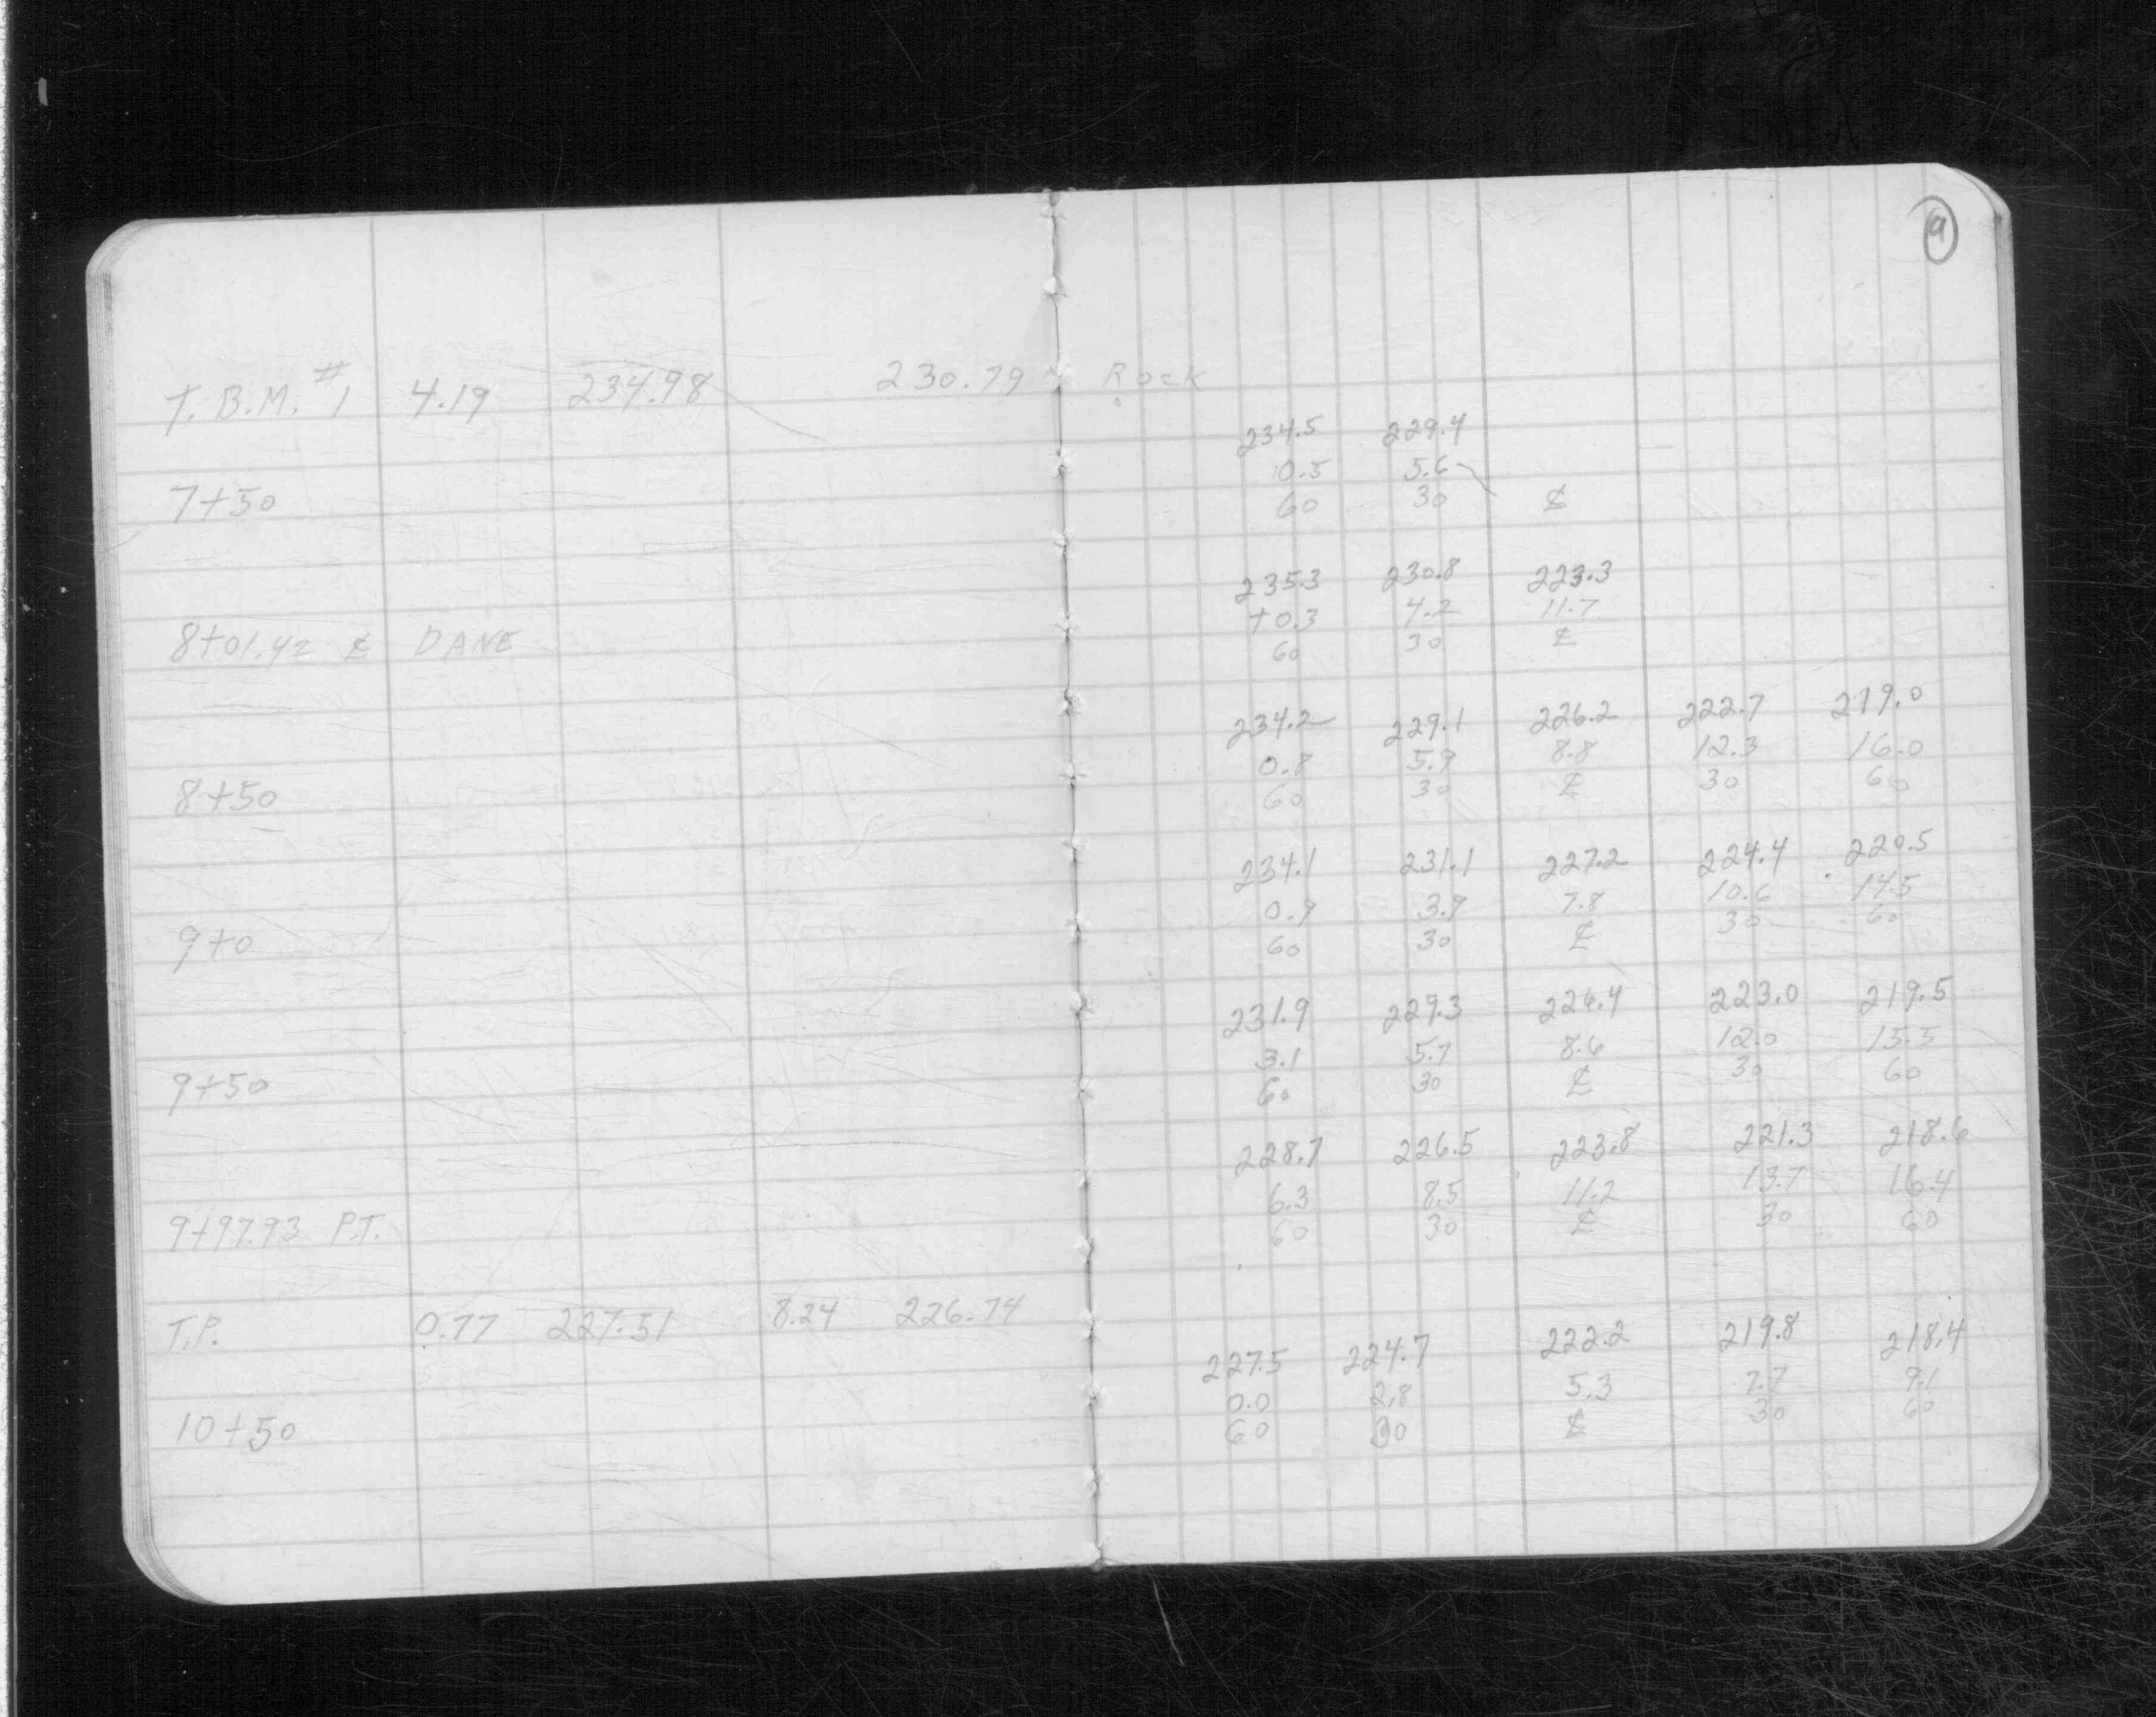 9
T.B.M. #1 4.19 234.98 230.79 Rock
234.5 229.4
0.5 5.6
7+50 60 30 ℄
235.3 230.8 223.3
+0.3 4.2 11.7
8+01.42 ℄ DANE 60 30 ℄
234.2 229.1 226.2 222.7 219.0
0.8 5.9 8.8 12.3 16.0
8+50 60 30 ℄ 30 60
234.1 231.1 227.2 224.4 220.5
0.9 3.9 7.8 10.6 14.5
9+0 60 30 ℄ 30 60
231.9 229.3 226.4 223.0 219.5
3.1 5.7 8.6 12.0 15.5
9+50 60 30 ℄ 30 60
228.7 226.5 223.8 221.3 218.6
6.3 8.5 11.2 13.7 16.4
9+97.93 P.T. 60 30 ℄ 30 60
T.P. 0.77 227.51 8.24 226.74
227.5 224.7 222.2 219.8 218.4
0.0 2.8 5.3 7.7 9.1
10+50 60 30 ℄ 30 60